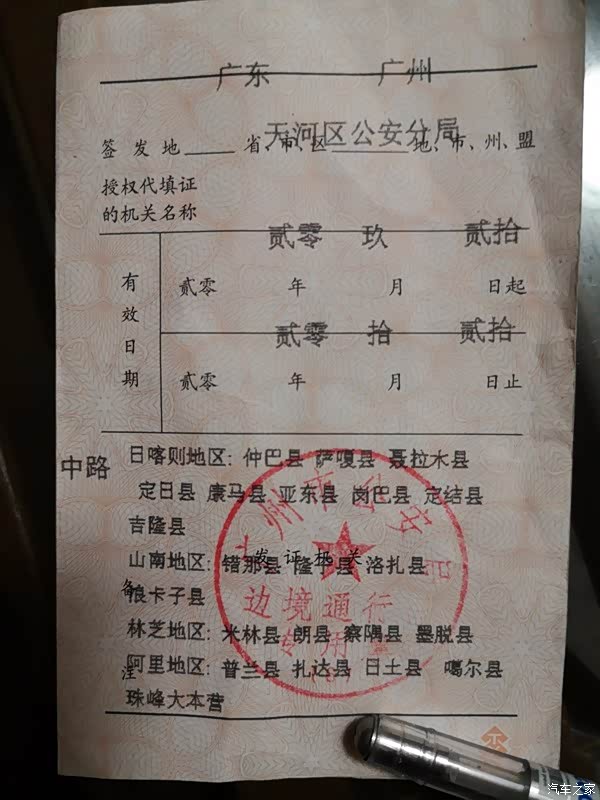 广东 广州
天河区公安分局
签发地 省、市、区 地、市、州、盟
授权代填证
的机关名称
贰零 玖 贰拾
有效日期
贰零 年 月 日起
贰零 拾 贰拾
贰零 年 月 日止
中路
日喀则地区: 仲巴县 萨嘎县 聂拉木县
定日县 康马县 亚东县 岗巴县 定结县
吉隆县
发证机关
山南地区: 错那县 隆子县 洛扎县
浪卡子县
备
林芝地区: 米林县 朗县 察隅县 墨脱县
注
阿里地区: 普兰县 扎达县 日土县 噶尔县
珠峰大本营
州市公安局
边境通行
专用章
汽车之家